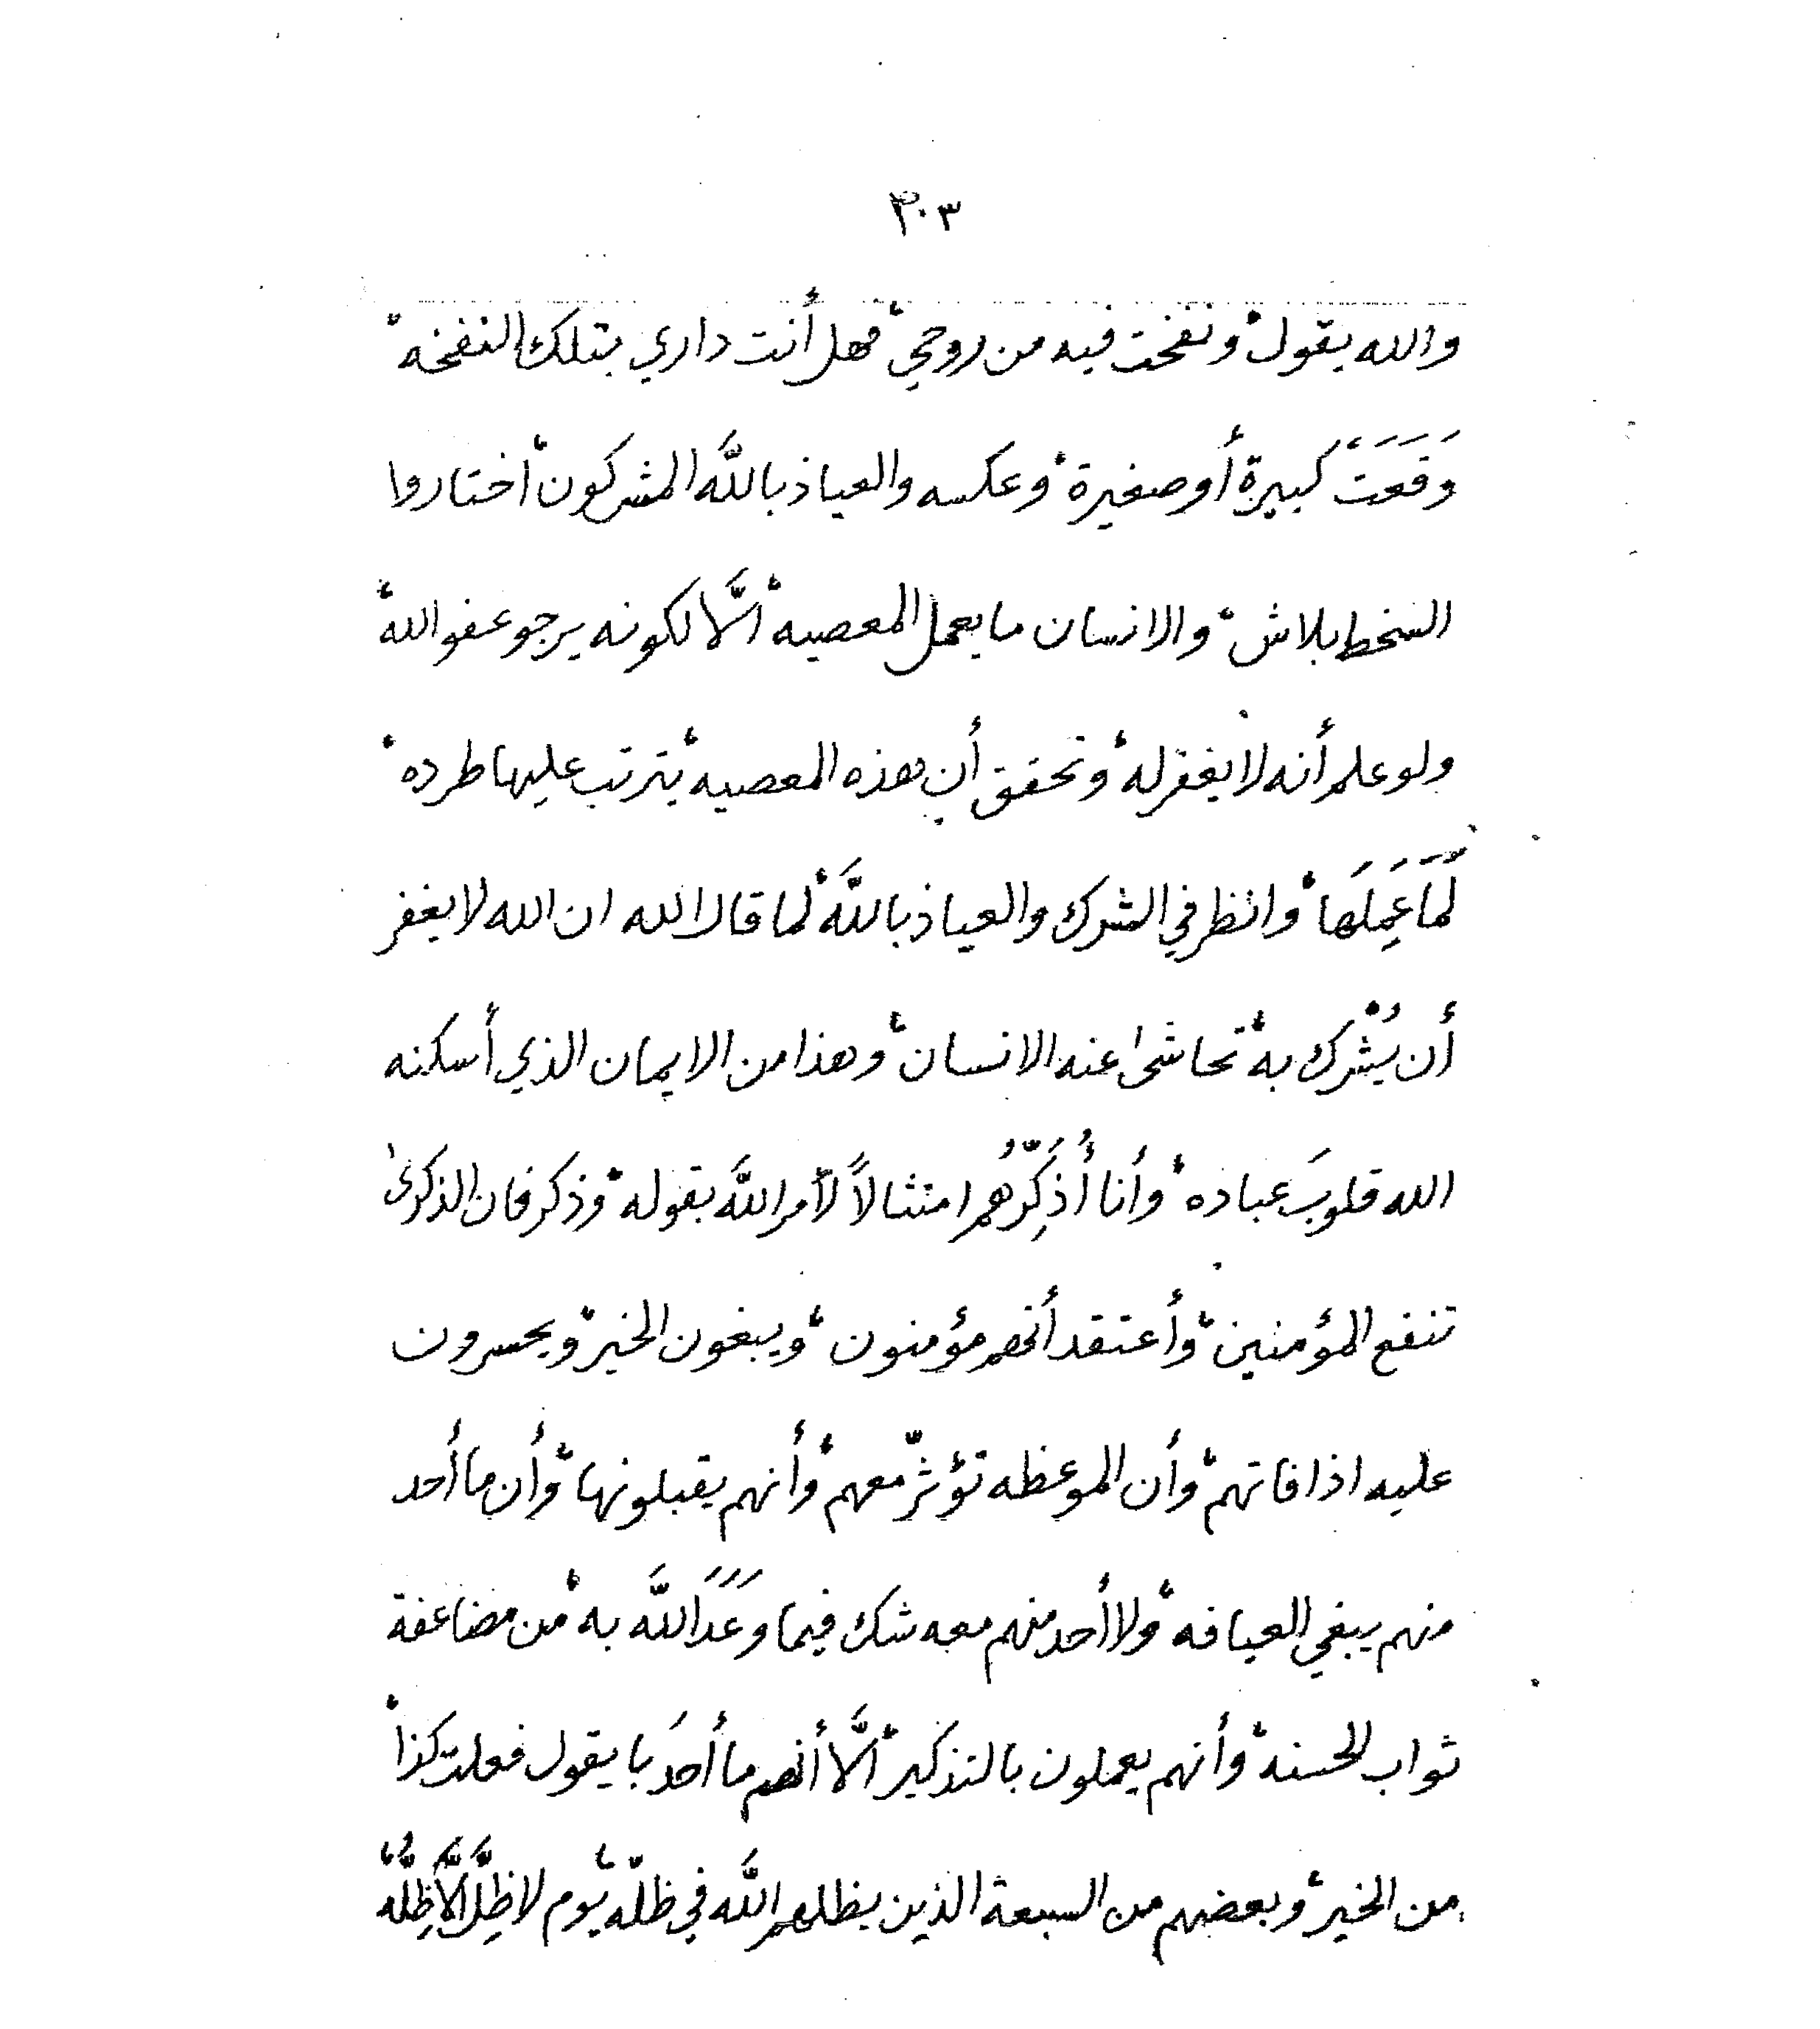 ٣٠٣
والله يقول، ونفخت فيه من روحي، فهل أنت داري بتلك النفخه،
وَقَعَتْ كبيرة أو صغيرة، وعكسه والعياذ باللَّه المشركون، اختاروا
السخط بلاش، والانسان ما يعمل المعصيه، الَّا لكونه يرجو عفو الله،
ولو علم أنه لا يغفر له، وتحقق أن هذه المعصيه، يترتب عليها طرده،
لَمَا عَمِلَها، وانظر في الشرك والعياذ باللَّه، لما قال الله ان الله لا يغفر
أن يُشْرك به، تحاشىٰ عنه الانسان، وهذا من الايمان الذي أسكنه
الله قلوبَ عباده، وأنا أُذَكِّرُهُم امتثالاً لأمر اللَّه بقوله، وذكر فان الذكرىٰ
تنفع المؤمنين، وأعتقد أنهم مؤمنون، ويبغون الخير، ويحسرون
عليه اذا فاتهم، وأن الموعظه تؤثّر معهم، وأنهم يقبلونها، وأن ما أحد
منهم يبغي العيافه، ولا أحد منهم معه شك فيما وَعَدَ اللَّه به، من مضاعفة
ثواب الحسنه، وأنهم يعملون بالتذكير، الَّا أنهم ما أحَد با يقول فعلت كذا،
من الخير، وبعضهم من السبعة الذين يظلهم اللَّه في ظلّه، يوم لا ظِلَّ الَّا ظِلُّه،